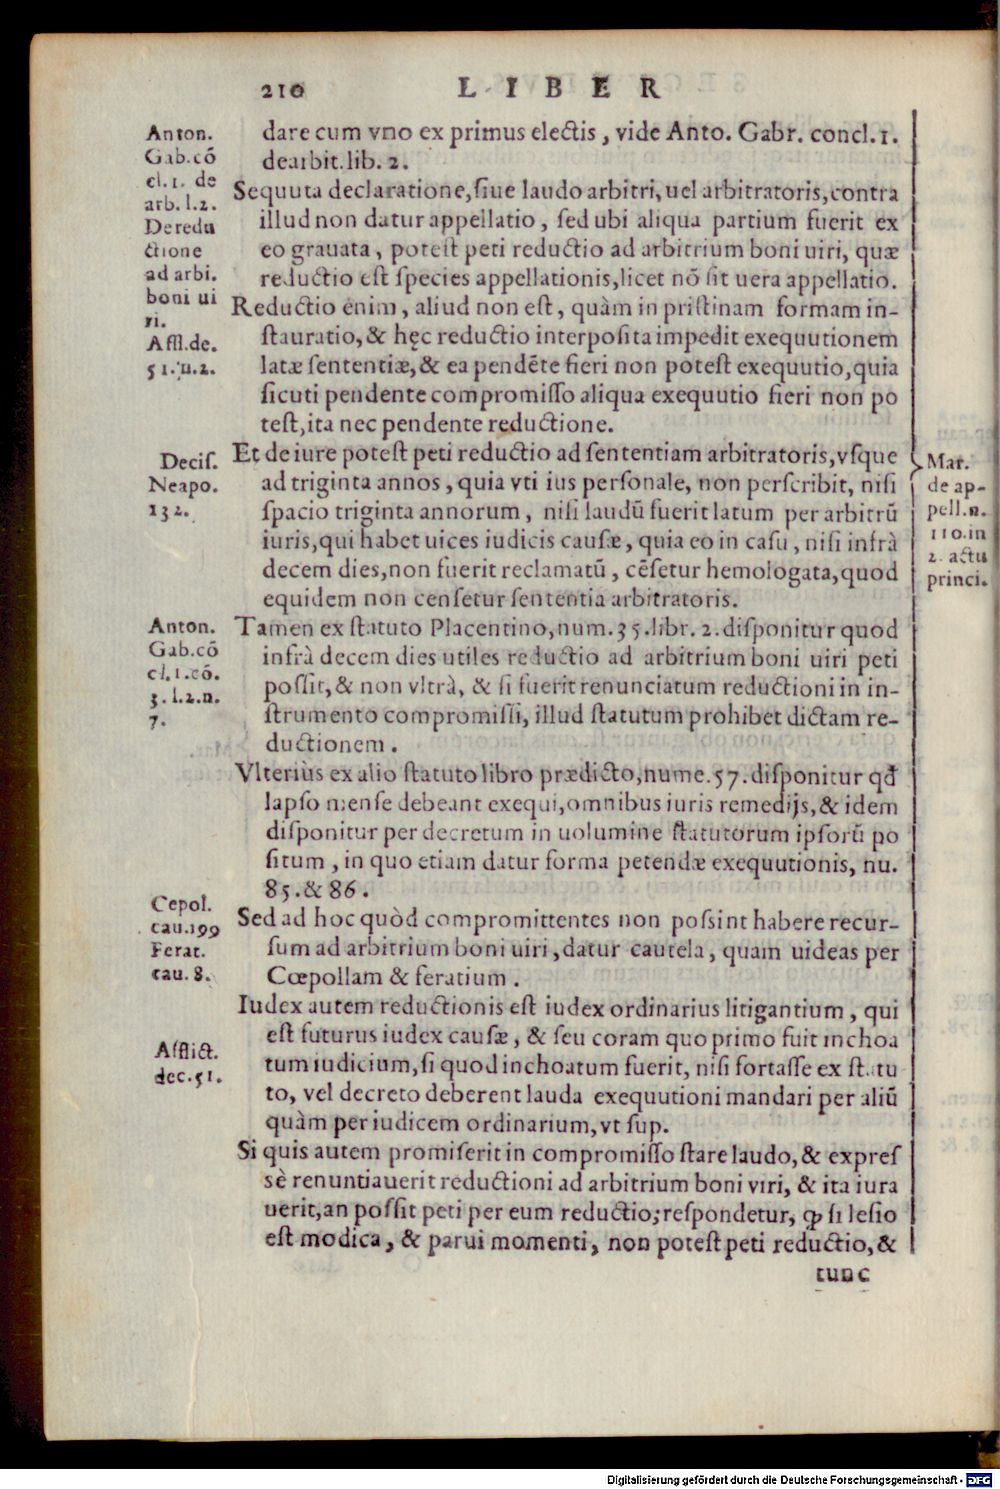 210 LIBER
Anton.
Gab.cō
cl.1. de
arb. l.2.
De redu
ctione
ad arbi.
boni ui
ri.
Affl.de.
51.n.2.
dare cum vno ex primus electis, vide Anto. Gabr. concl.1.
dearbit.lib. 2.
Sequuta declaratione,siue laudo arbitri,uel arbitratoris,contra
illud non datur appellatio, sed ubi aliqua partium fuerit ex
eo grauata, potest peti reductio ad arbitrium boni uiri, quæ
reductio est species appellationis,licet nō sit uera appellatio.
Reductio enim, aliud non est, quàm in pristinam formam in-
stauratio,& hęc reductio interposita impedit exequutionem
latæ sententiæ,& ea pendēte fieri non potest exequutio,quia
sicuti pendente compromisso aliqua exequutio fieri non po
test,ita nec pendente reductione.
Decis.
Neapo.
132.
Et de iure potest peti reductio ad sententiam arbitratoris,vsque
ad triginta annos, quia vti ius personale, non perscribit, nisi
spacio triginta annorum, nisi laudū fuerit latum per arbitrū
iuris,qui habet uices iudicis causæ, quia eo in casu, nisi infrà
decem dies,non fuerit reclamatū, cēsetur hemologata,quod
equidem non censetur sententia arbitratoris.
Mar.
de ap-
pell.n.
110.in
2. actu
princi.
Anton.
Gab.cō
cl.1.cō.
3. l.2.n.
7.
Tamen ex statuto Placentino,num.35.libr. 2.disponitur quod
infrà decem dies utiles reductio ad arbitrium boni uiri peti
possit,& non vltrà, & si fuerit renunciatum reductioni in in-
strumento compromissi, illud statutum prohibet dictam re-
ductionem.
Vlteriùs ex alio statuto libro prædicto,nume.57.disponitur qđ
lapso mense debeant exequi,omnibus iuris remedijs,& idem
disponitur per decretum in uolumine statutorum ipsorū po
situm, in quo etiam datur forma petendæ exequutionis, nu.
85.& 86.
Cepol.
cau.199
Ferat.
cau. 8.
Sed ad hoc quòd compromittentes non possint habere recur-
sum ad arbitrium boni uiri,datur cautela, quam uideas per
Cœpollam & feratium.
Iudex autem reductionis est iudex ordinarius litigantium, qui
est futurus iudex causæ, & seu coram quo primo fuit inchoa
tum iudicium,si quod inchoatum fuerit, nisi fortasse ex statu
to, vel decreto deberent lauda exequutioni mandari per aliū
quàm per iudicem ordinarium,vt sup.
Afflict.
dec.51.
Si quis autem promiserit in compromisso stare laudo,& expres
sè renuntiauerit reductioni ad arbitrium boni viri, & ita iura
uerit,an possit peti per eum reductio;respondetur, ꝙ si lesio
est modica, & parui momenti, non potest peti reductio,&
tunc
Digitalisierung gefördert durch die Deutsche Forschungsgemeinschaft - DFG